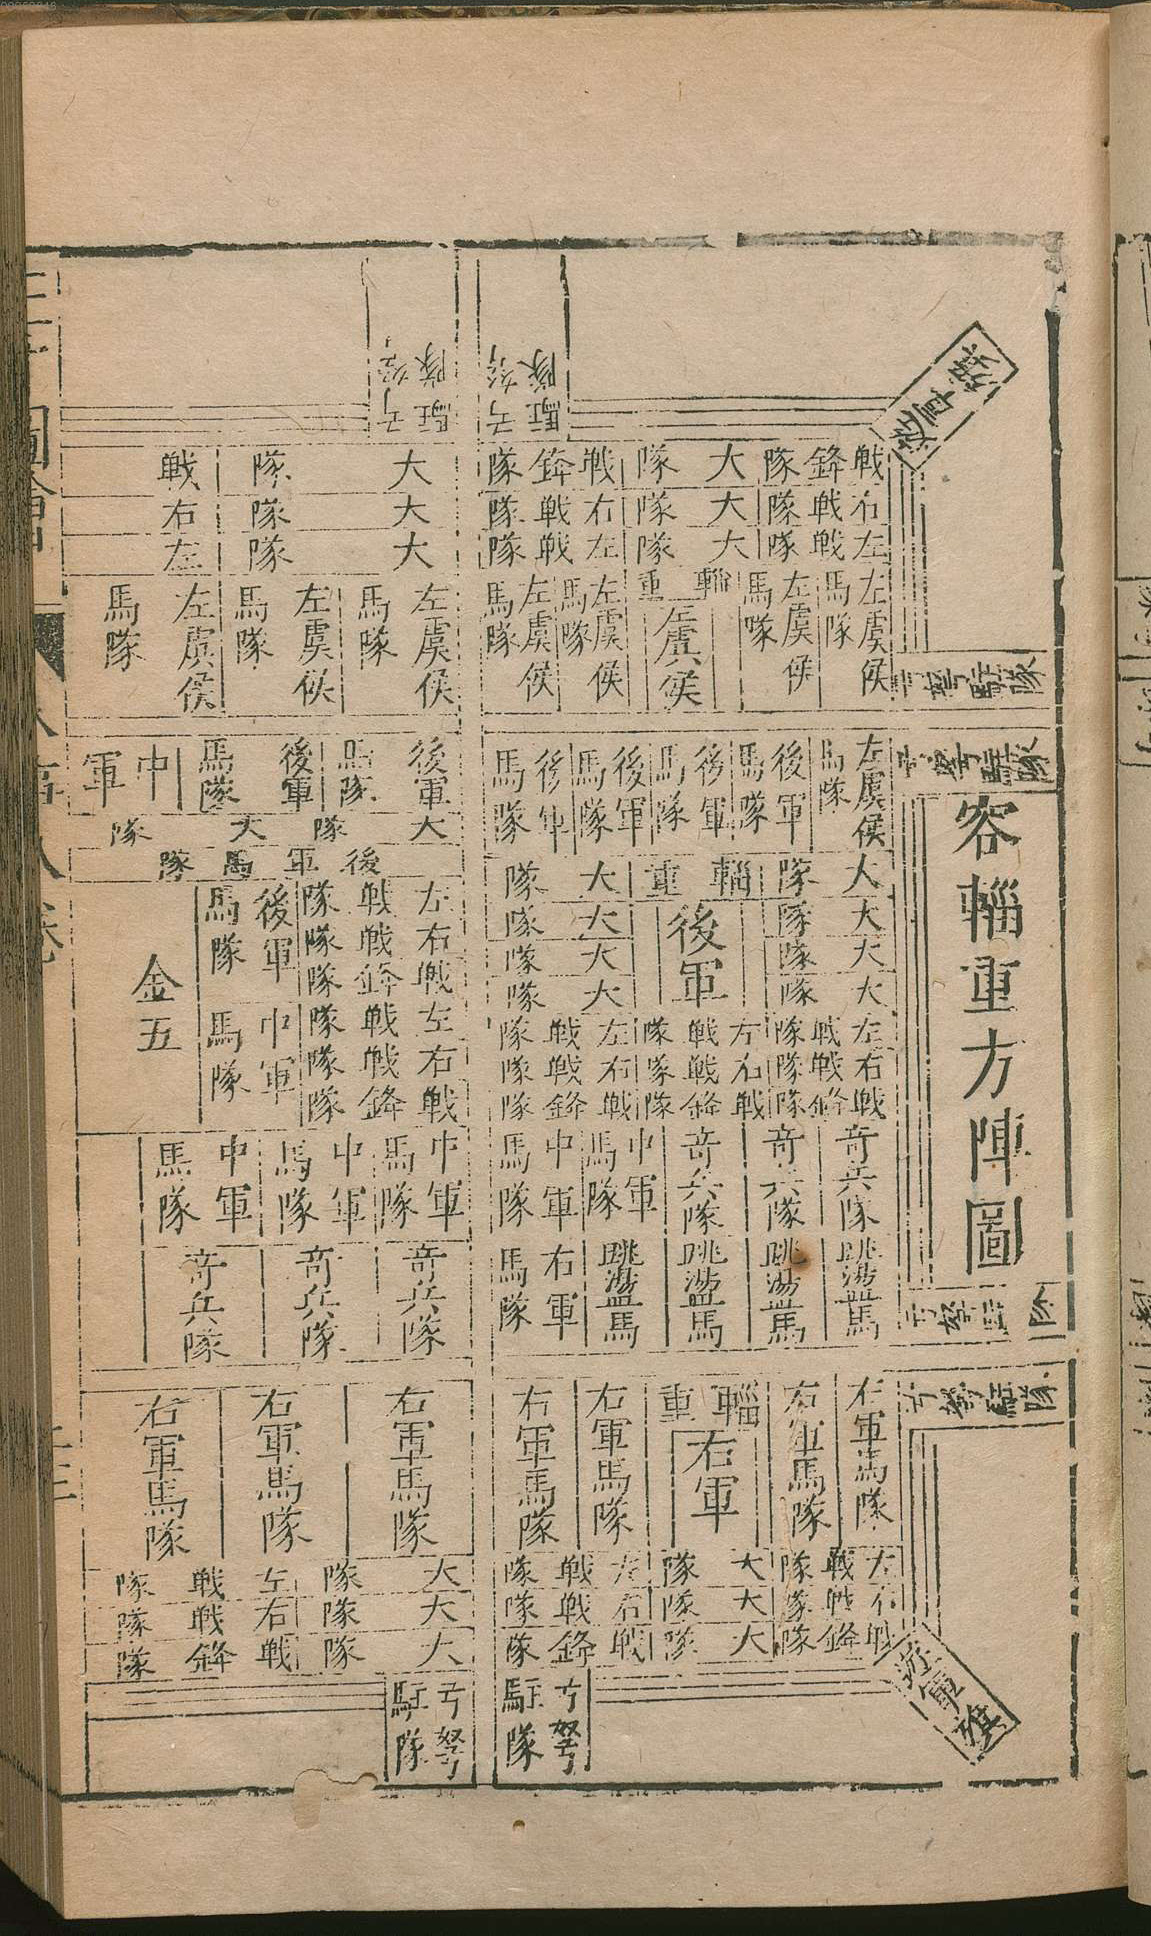 容輜重方陣圖
弓弩駐隊
弓弩駐隊
弓弩駐隊
弓弩駐隊
戦鋒隊 大隊 戦鋒隊
右戦隊 大隊 右戦隊
左戦隊 大隊 左戦隊
左虞侯馬隊
左虞侯馬隊
輜重
左虞侯
左虞侯馬隊
左虞侯馬隊
左虞侯馬隊
後軍馬隊
後軍馬隊
後軍馬隊
後軍馬隊
大隊 輜重 大隊
大隊 後軍 大隊
大隊 大隊
大隊 大隊
左戦隊 左戦隊 左戦隊
右戦隊 右戦隊 右戦隊
戦鋒隊 戦鋒隊 戦鋒隊
奇兵隊
奇兵隊
奇兵隊
中軍馬隊
中軍馬隊
跳盪馬
跳盪馬
跳盪馬
跳盪馬
右軍馬隊
右軍馬隊
右軍馬隊
輜重
右軍
右軍馬隊
右軍馬隊
左戦隊 大隊 左戦隊
右戦隊 大隊 右戦隊
戦鋒隊 大隊 戦鋒隊
弓弩駐隊
弓弩駐隊
大隊 戦
大隊 右
大隊 左
左虞侯馬隊
左虞侯馬隊
左虞侯馬隊
後軍馬隊
後軍馬隊
中軍
大隊 大隊
後軍馬隊
左戦隊
右戦隊
戦鋒隊
左戦隊
右戦隊
戦鋒隊
後軍馬隊
中軍馬隊
金五
中軍馬隊
中軍馬隊
中軍馬隊
奇兵隊
奇兵隊
奇兵隊
右軍馬隊
右軍馬隊
右軍馬隊
大隊 左戦隊
大隊 右戦隊
大隊 戦鋒隊
弓弩駐隊
弓弩駐隊